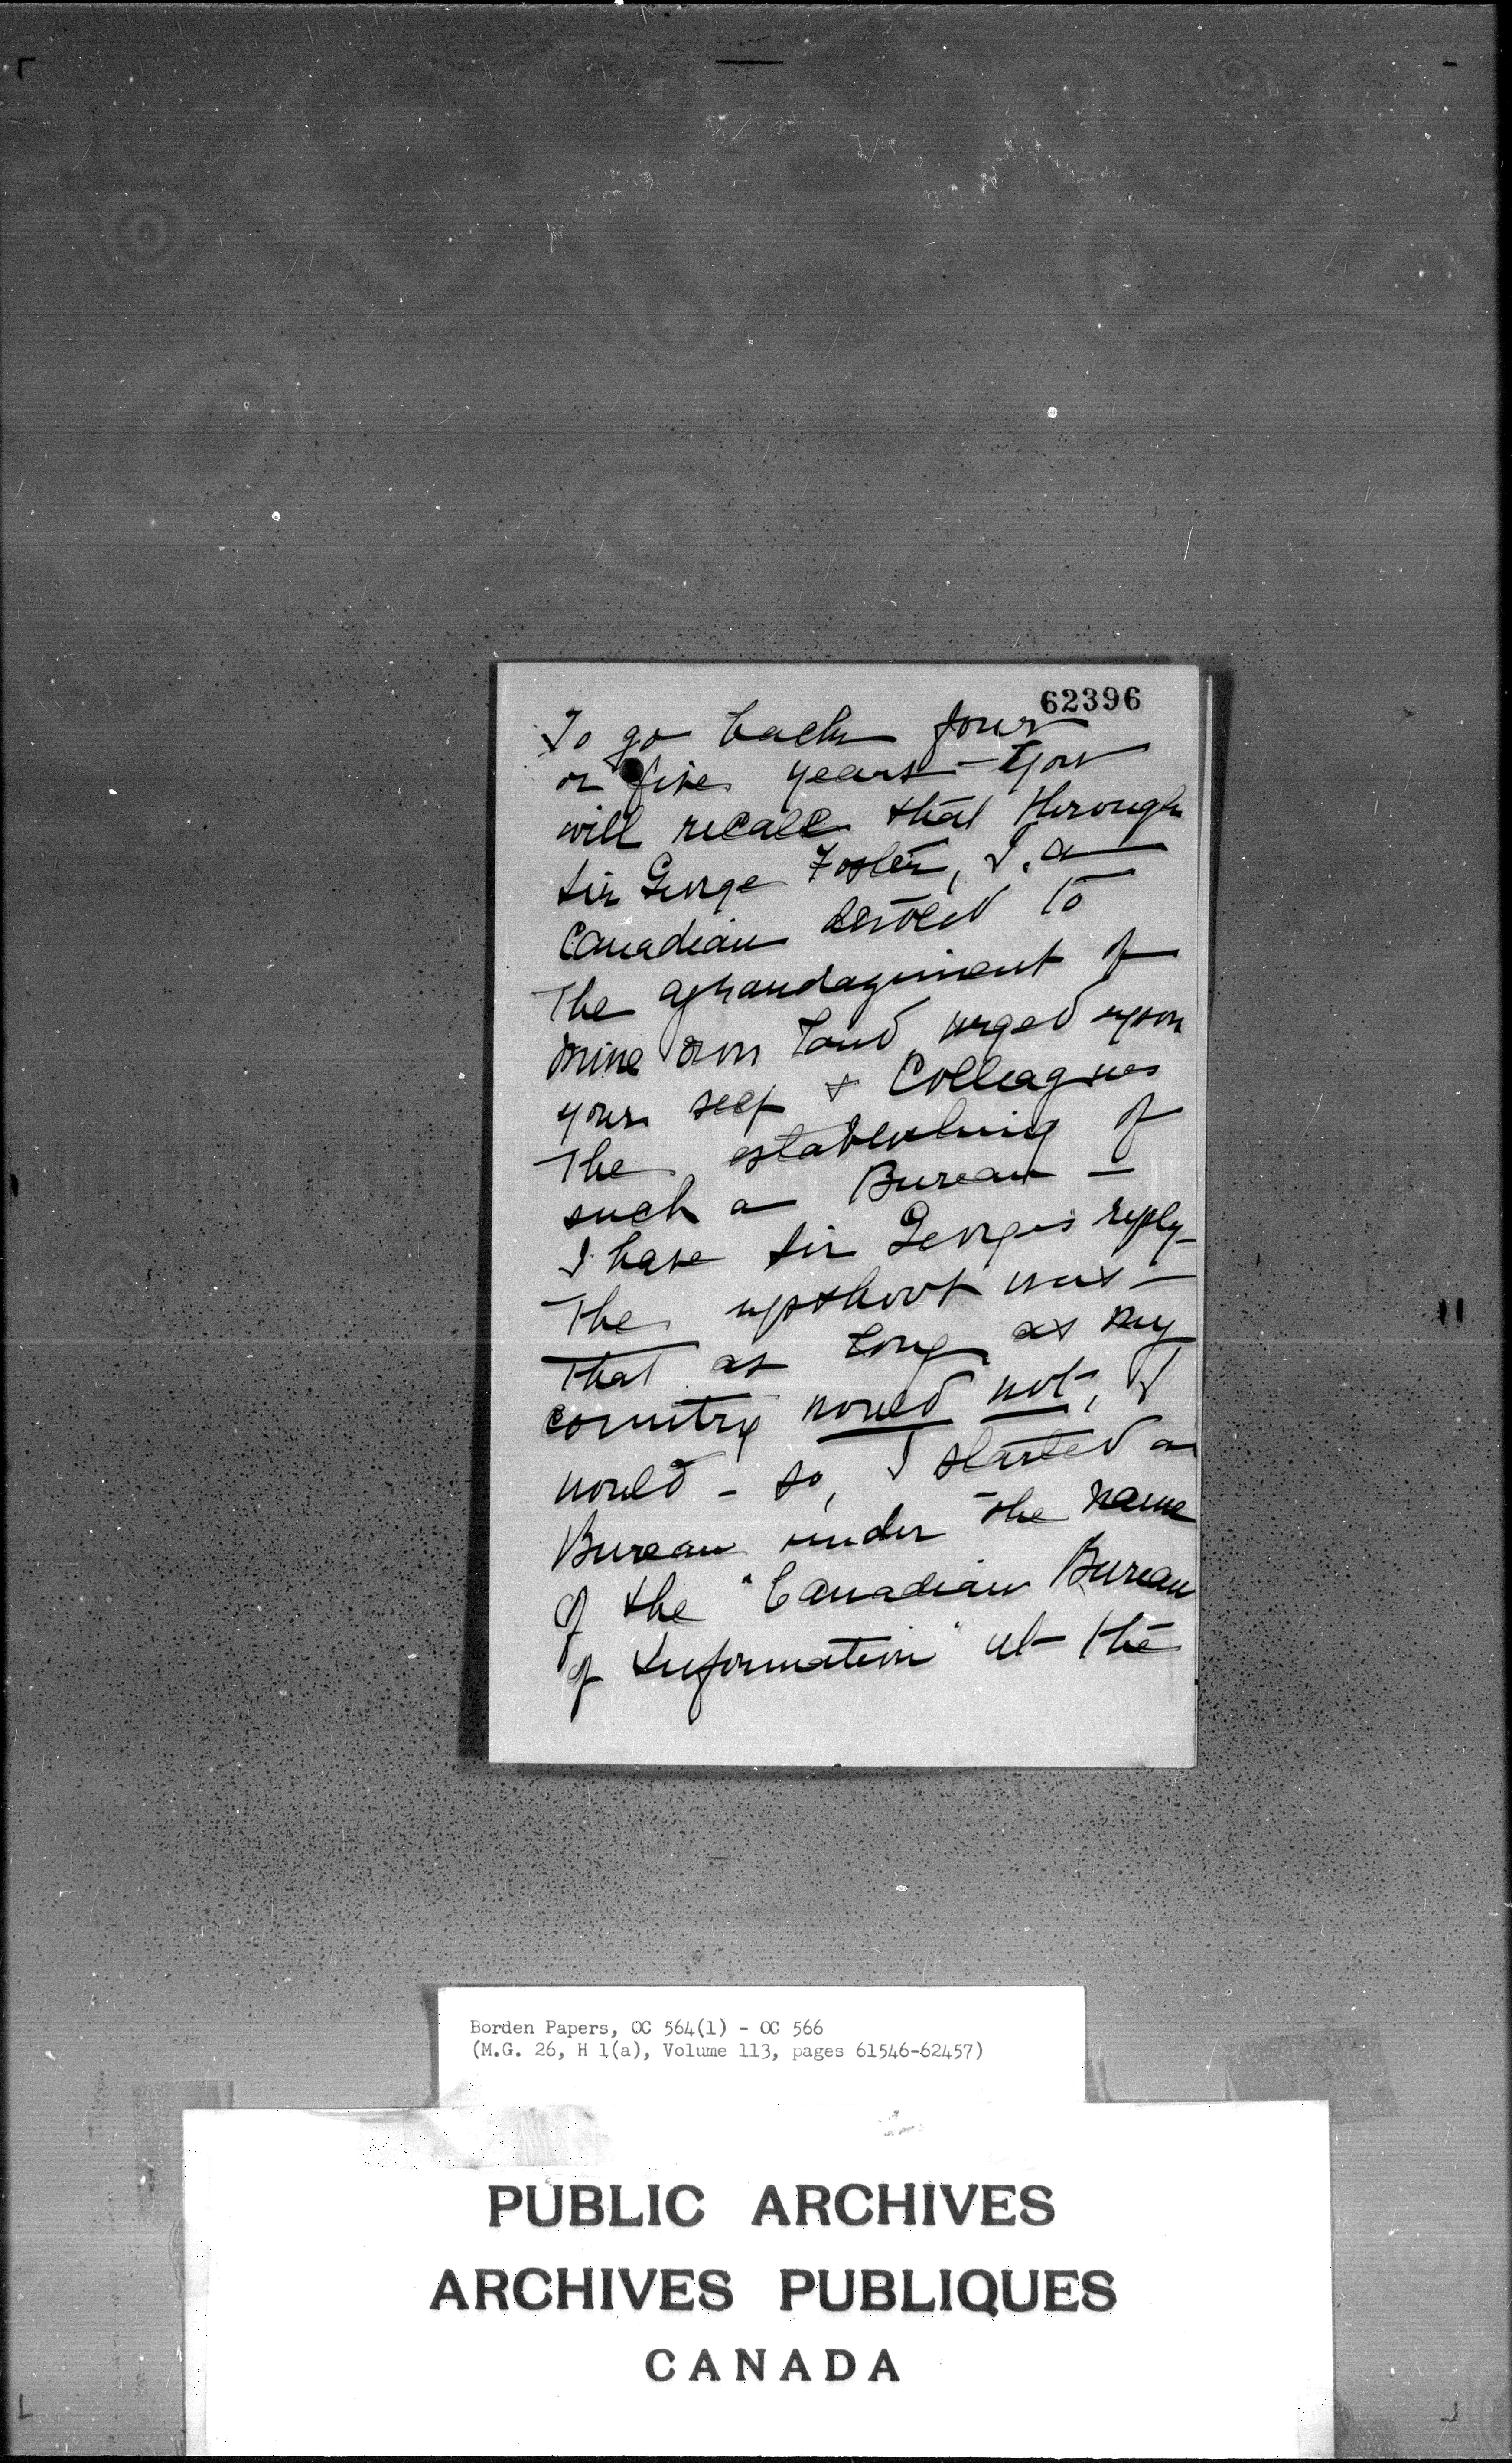 62396
To go back four
or five years - you
will recall that through
Sir George Foster, I, a
Canadian devoted to
the
mine own land, urged upon
your self & Colleagues
the establishing of
such a Bureau -
I have Sir George's reply -
The upshoot was -
that as long as my
country would not, I
would - so, I started a
Bureau under the name
of the "Canadian Bureau
of Information" at the
Borden Papers, OC 564(1) - OC 566
(M.G. 26, H 1(a), Volume 113, pages 61546-62457)
PUBLIC ARCHIVES
ARCHIVES PUBLIQUES
CANADA